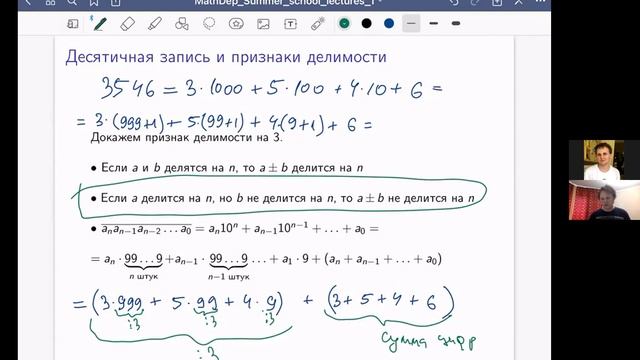 MathDep_Summer_school_lectures_1
Десятичная запись и признаки делимости
3546 = 3·1000 + 5·100 + 4·10 + 6 =
= 3·(999+1) + 5·(99+1) + 4·(9+1) + 6 =
Докажем признак делимости на 3.
• Если a и b делятся на n, то a ± b делится на n
• Если a делится на n, но b не делится на n, то a ± b не делится на n
• aₙaₙ₋₁aₙ₋₂ … a₀ = aₙ10ⁿ + aₙ₋₁10ⁿ⁻¹ + … + a₀ =
= aₙ · 99 … 9 + aₙ₋₁ · 99 … 9 + … + a₁ · 9 + (aₙ + aₙ₋₁ + … + a₀)
n штук n−1 штук
= (3·999 + 5·99 + 4·9) + (3+5+4+6)
⋮3 ⋮3 ⋮3
сумма цифр
⋮3